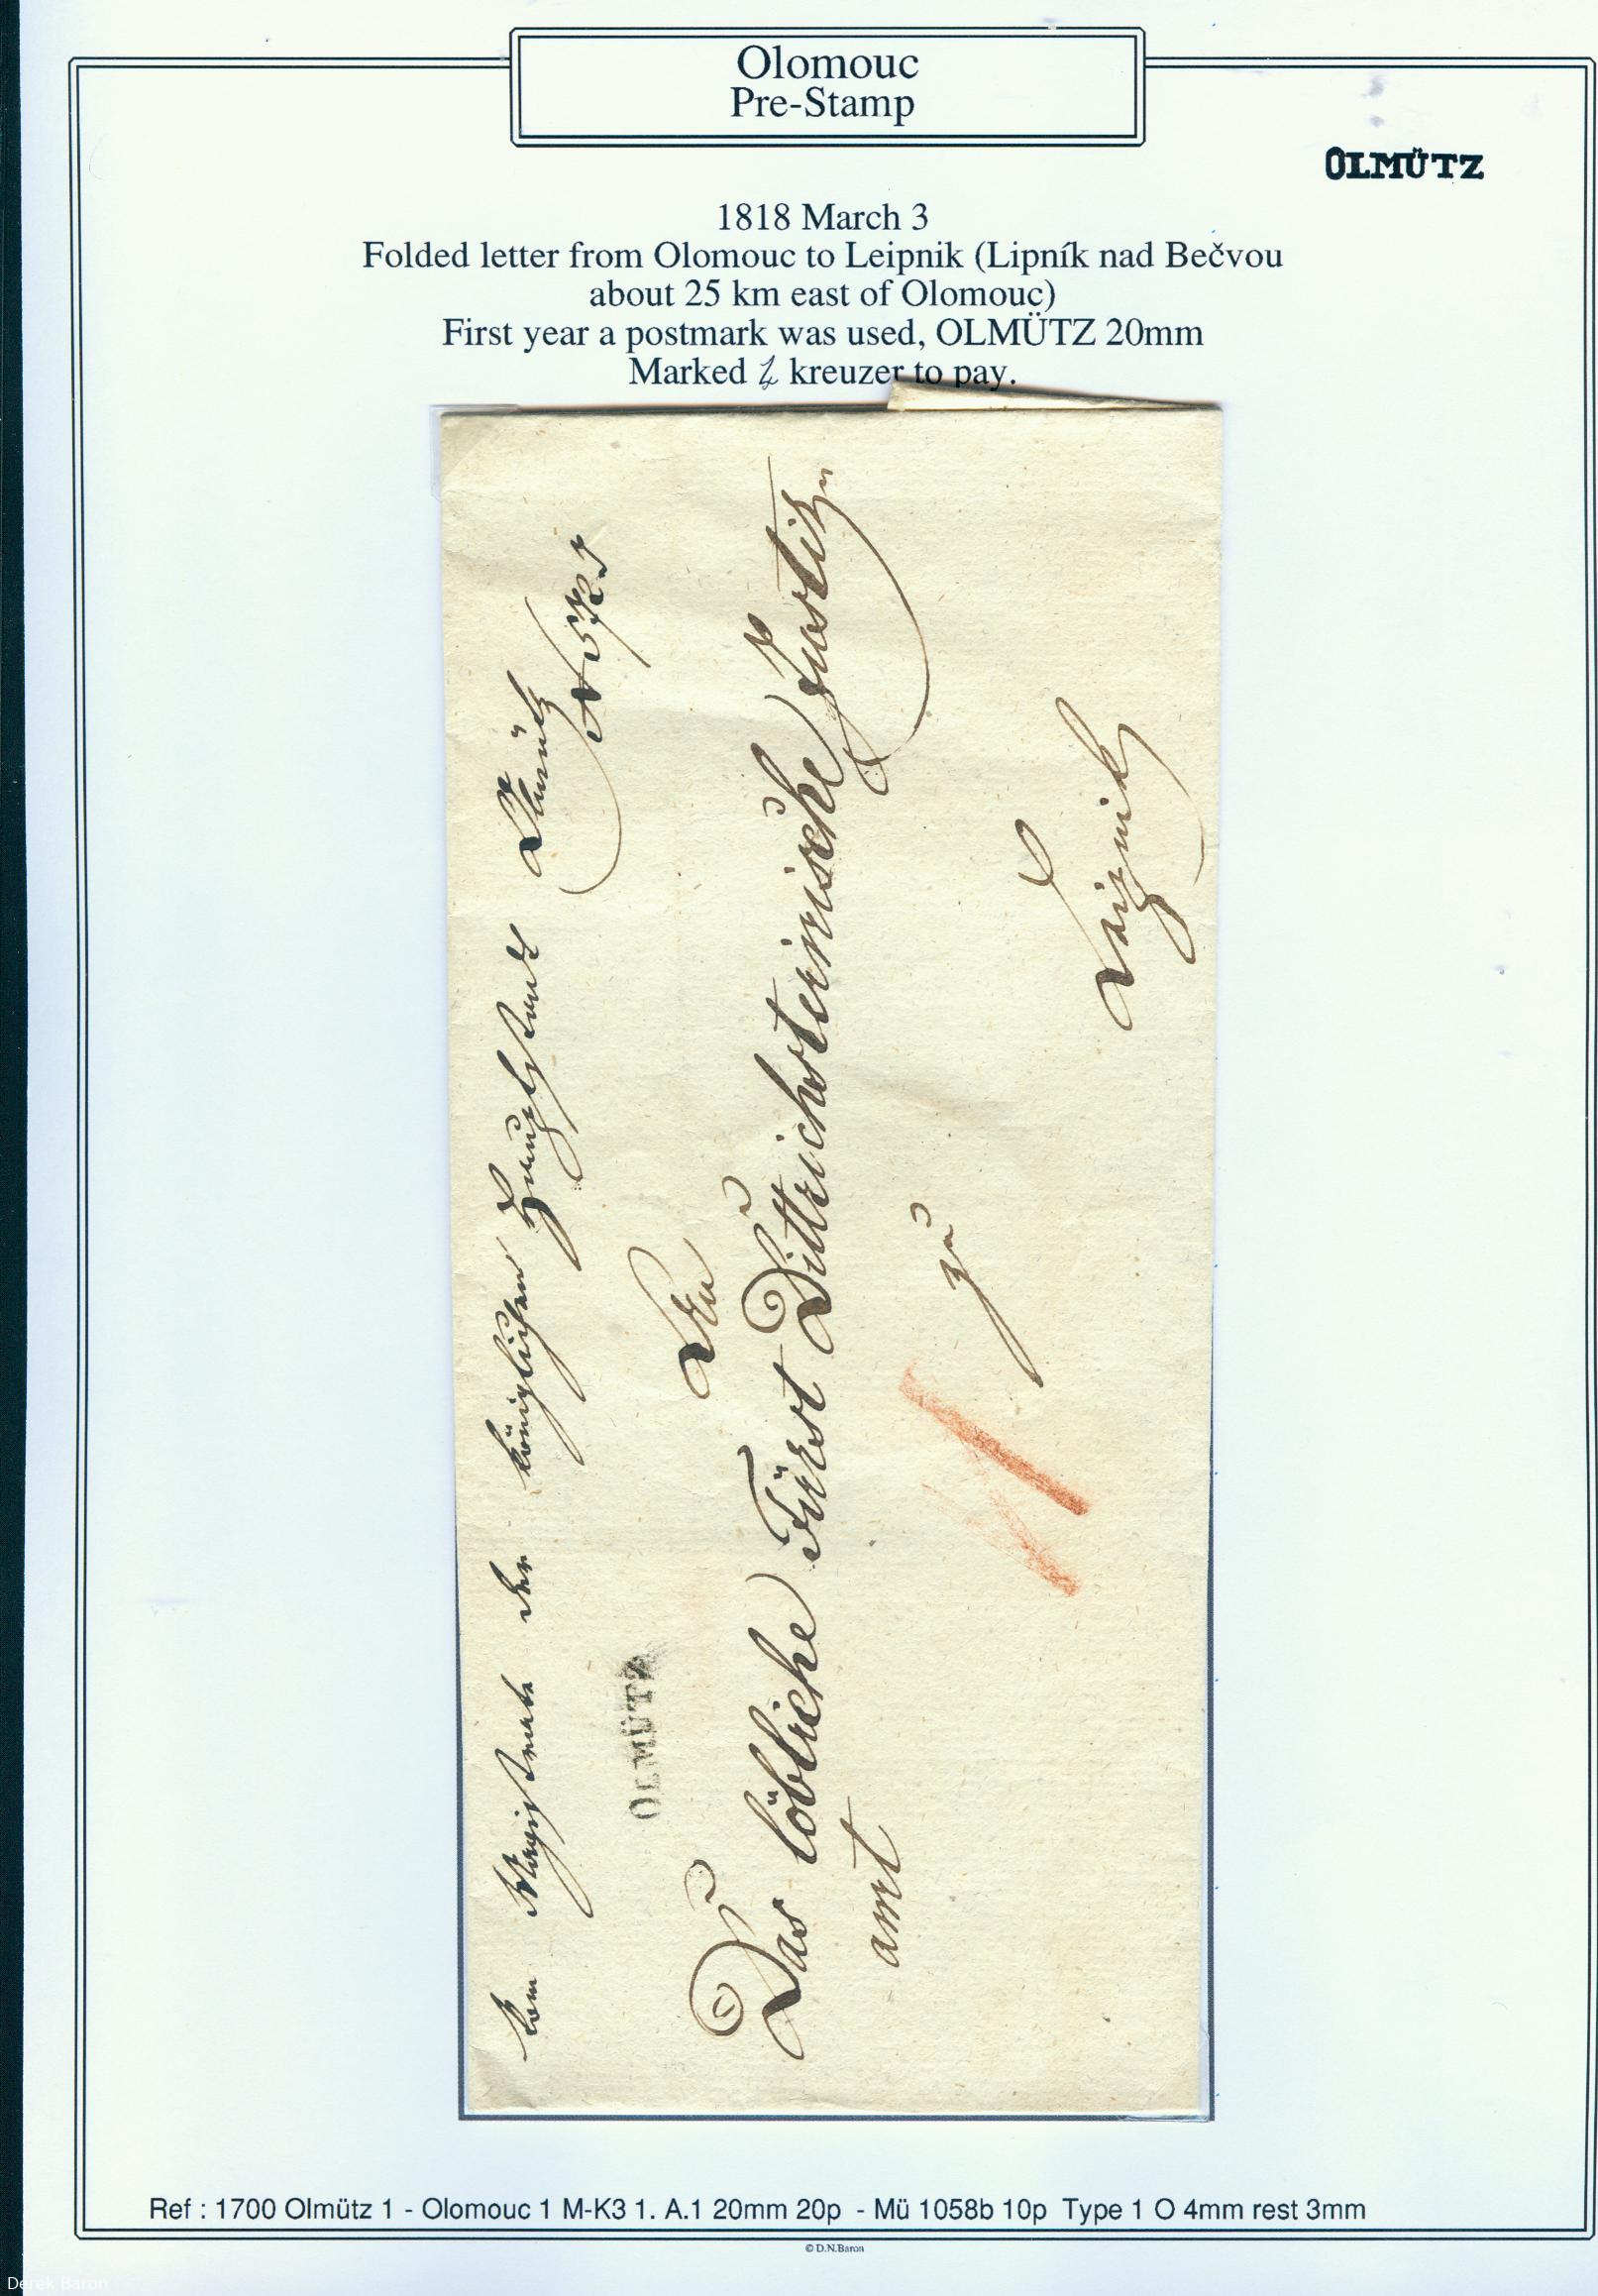 Olomouc
Pre-Stamp
OLMÜTZ
1818 March 3
Folded letter from Olomouc to Leipnik (Lipník nad Bečvou
about 25 km east of Olomouc)
First year a postmark was used, OLMÜTZ 20mm
Marked kreuzer to pay.
Vom Magistrate der königlichen Hauptstadt Ollmütz
OLMÜTZ
An
Das löbliche Fürst Dittrichsteinische Justitz
amt
zu
Leipnik
Ref : 1700 Olmütz 1 - Olomouc 1 M-K3 1. A.1 20mm 20p - Mü 1058b 10p Type 1 O 4mm rest 3mm
© D.N.Baron
Derek Baron